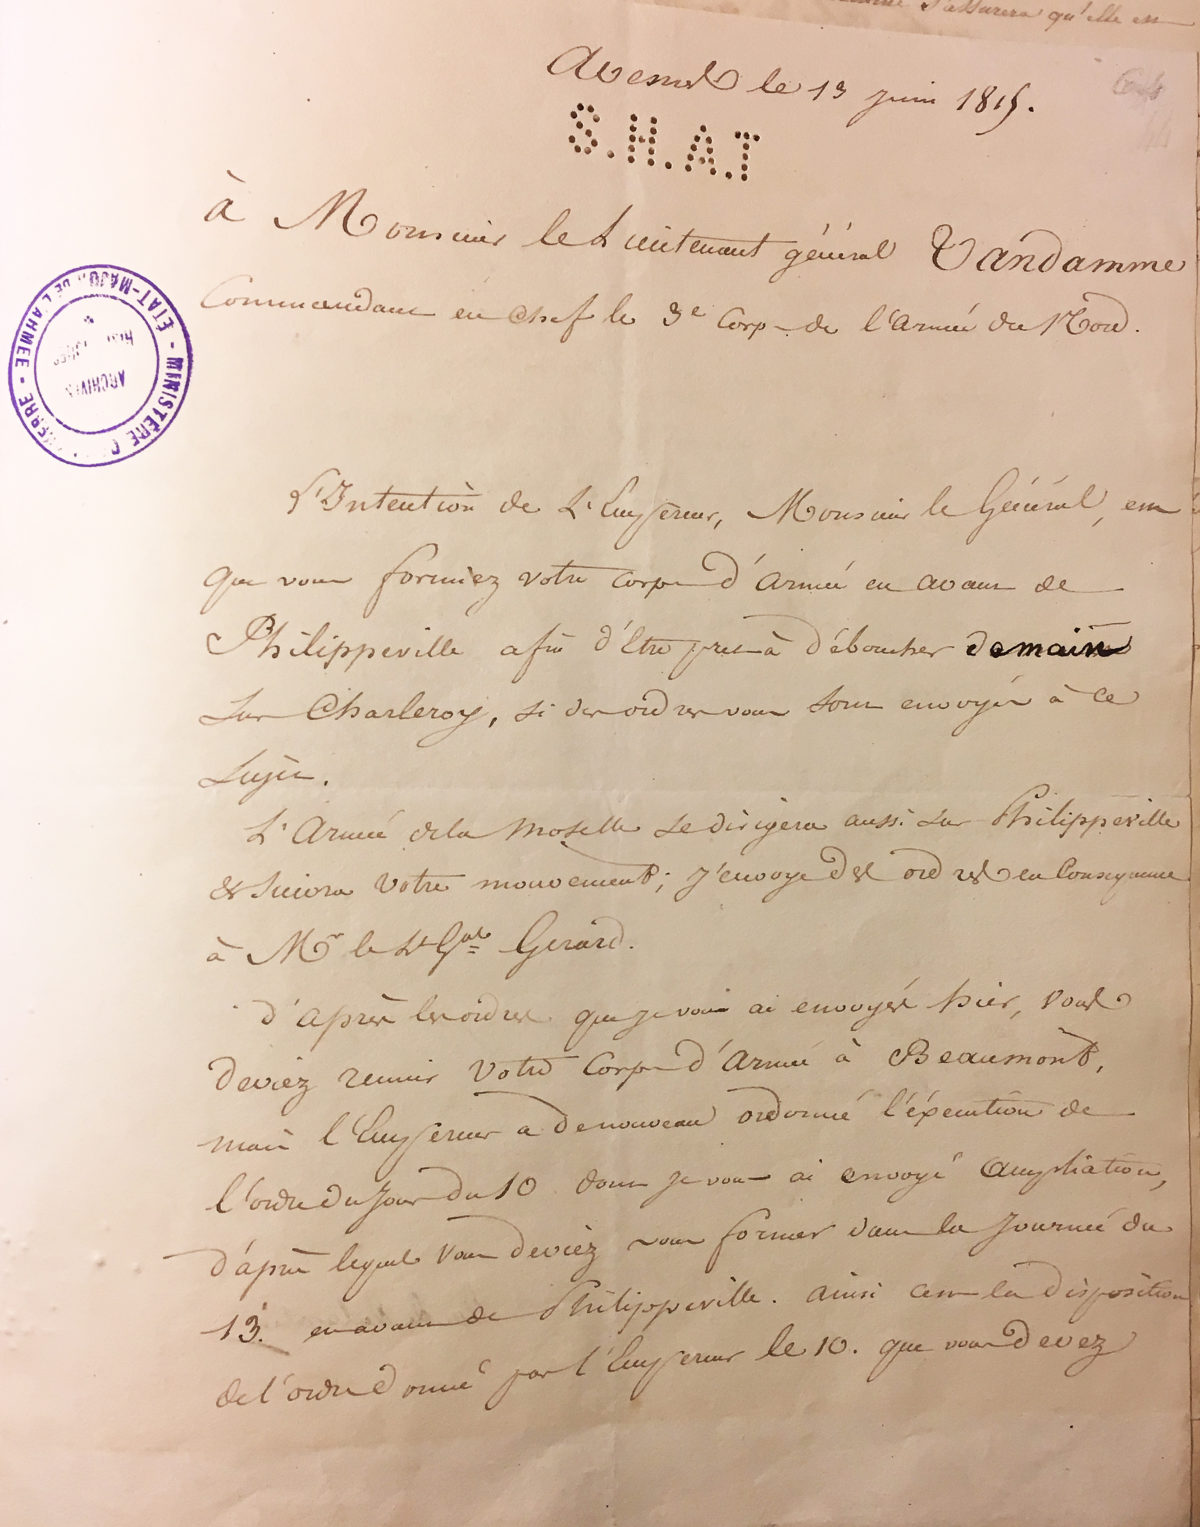 s'assurera qu'elle est
Avesnes le 13 juin 1815.
S.H.A.T
à Monsieur le Lieutenant général Vandamme
Commandant en chef le 3e Corps de l'armée du Nord.
MINISTÈRE GUERRE - ÉTAT-MAJOR DE L'ARMÉE -
ARCHIVES
L'Intention de L'Empereur, Monsieur le Général, est
que vous formiez votre corps d'armée en avant de
Philippeville afin d'être pret à déboucher demain
sur Charleroy, si des ordres vous sont envoyés à ce
sujet.
L'Armée de la Moselle se dirigera aussi sur Philippeville
et suivra votre mouvement; j'envoye des ordres en Conséquence
à Mr le Lt Gal Gerard.
d'après les ordres que je vous ai envoyés hier, vous
deviez reunir votre Corps d'Armée à Beaumont,
mais l'Empereur a de nouveau ordonné l'éxecution de
l'ordre du jour du 10 dont je vous ai envoyé ampliation,
d'après lequel vous deviez vous former dans la journée du
13. en avant de Philippeville. ainsi c'est la disposition
de l'ordre donné par l'Empereur le 10. que vous devez